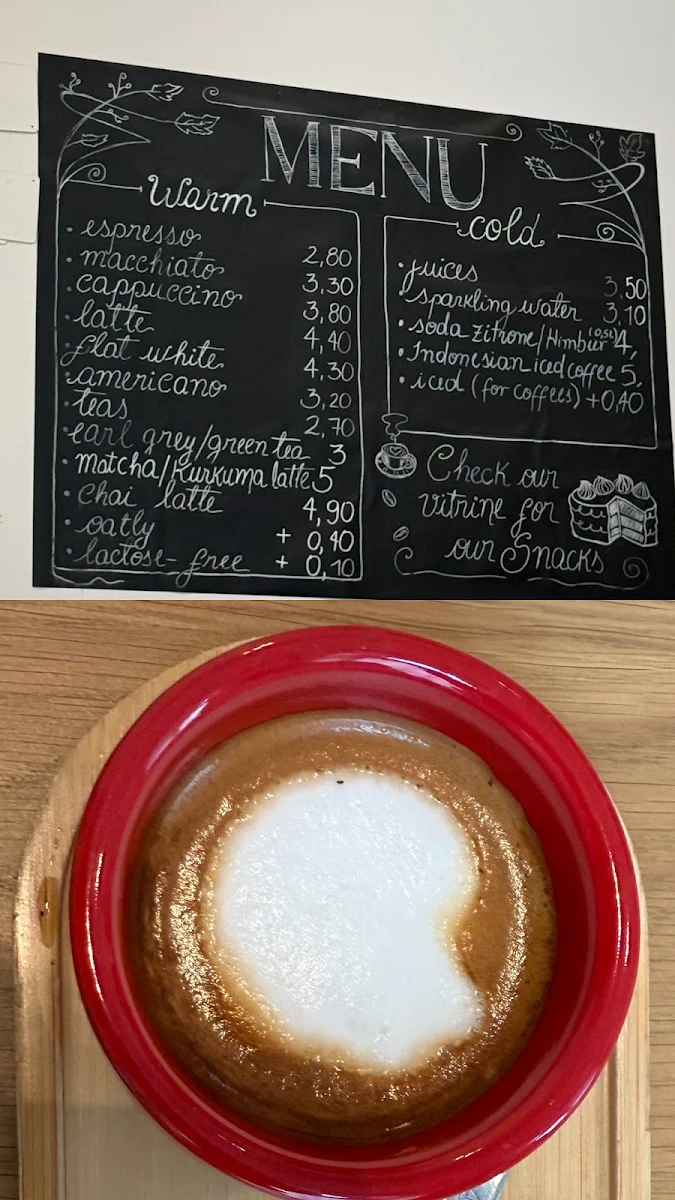 MENU
Warm
• espresso 2,80
• macchiato 3,30
• cappuccino 3,80
• latte 4,40
• flat white 4,30
• americano 3,20
• teas 2,70
• earl grey/green tea 3
• matcha/Kurkuma latte 5
• chai latte 4,90
• oatly + 0,40
• lactose-free + 0,10
cold
• juices 3,50
• sparkling water 3,10
• soda Zitrone/Himbür (0,5l) 4,
• Indonesian iced coffee 5,
• iced (for coffees) +0,40
Check our
vitrine for
our Snacks